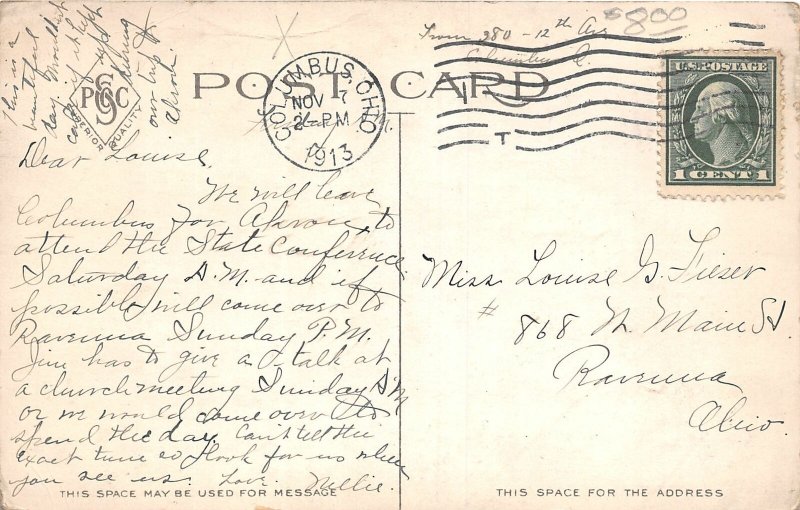 This is a
beautiful
day. Wouldn't
care if it kept
up
during
our trip to
Akron.
PSC
SUPERIOR QUALITY
POST CARD
COLUMBUS, OHIO
NOV 7
2-PM
1913
From 380 - 12th Ave
Columbus O.
$8.00
U.S. POSTAGE
1 CENT 1
Dear Louise,
We will leave
Columbus for Akron, to
attend the State Conference
Saturday A.M. and if
possible will come over to
Ravenna Sunday P.M.
Jim has to give a talk at
a church meeting Sunday A.M
or we would come over to
spend the day. Can't tell the
exact time so look for us when
you see us. Love. Nellie.
Miss Louise G. Fieser
# 868 N. Main St
Ravenna
Ohio.
THIS SPACE MAY BE USED FOR MESSAGE
THIS SPACE FOR THE ADDRESS